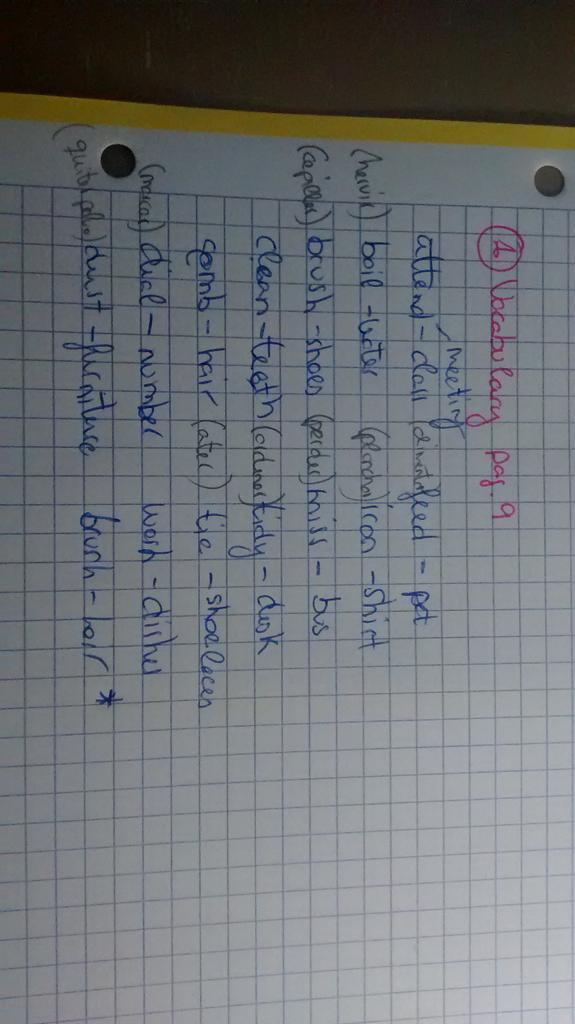 ① Vocabulary pag. 9
meeting
attend - class (alimentar) feed - pet
(hervir) boil - water (planchar) iron - shirt
(cepillar) brush - shoes (perder) miss - bus
clean - teeth (ordenar) tidy - desk
comb - hair (atar) tie - shoelaces
(marcar) dial - number wash - dishes
(quitar polvo) dust - furniture brush - hair *